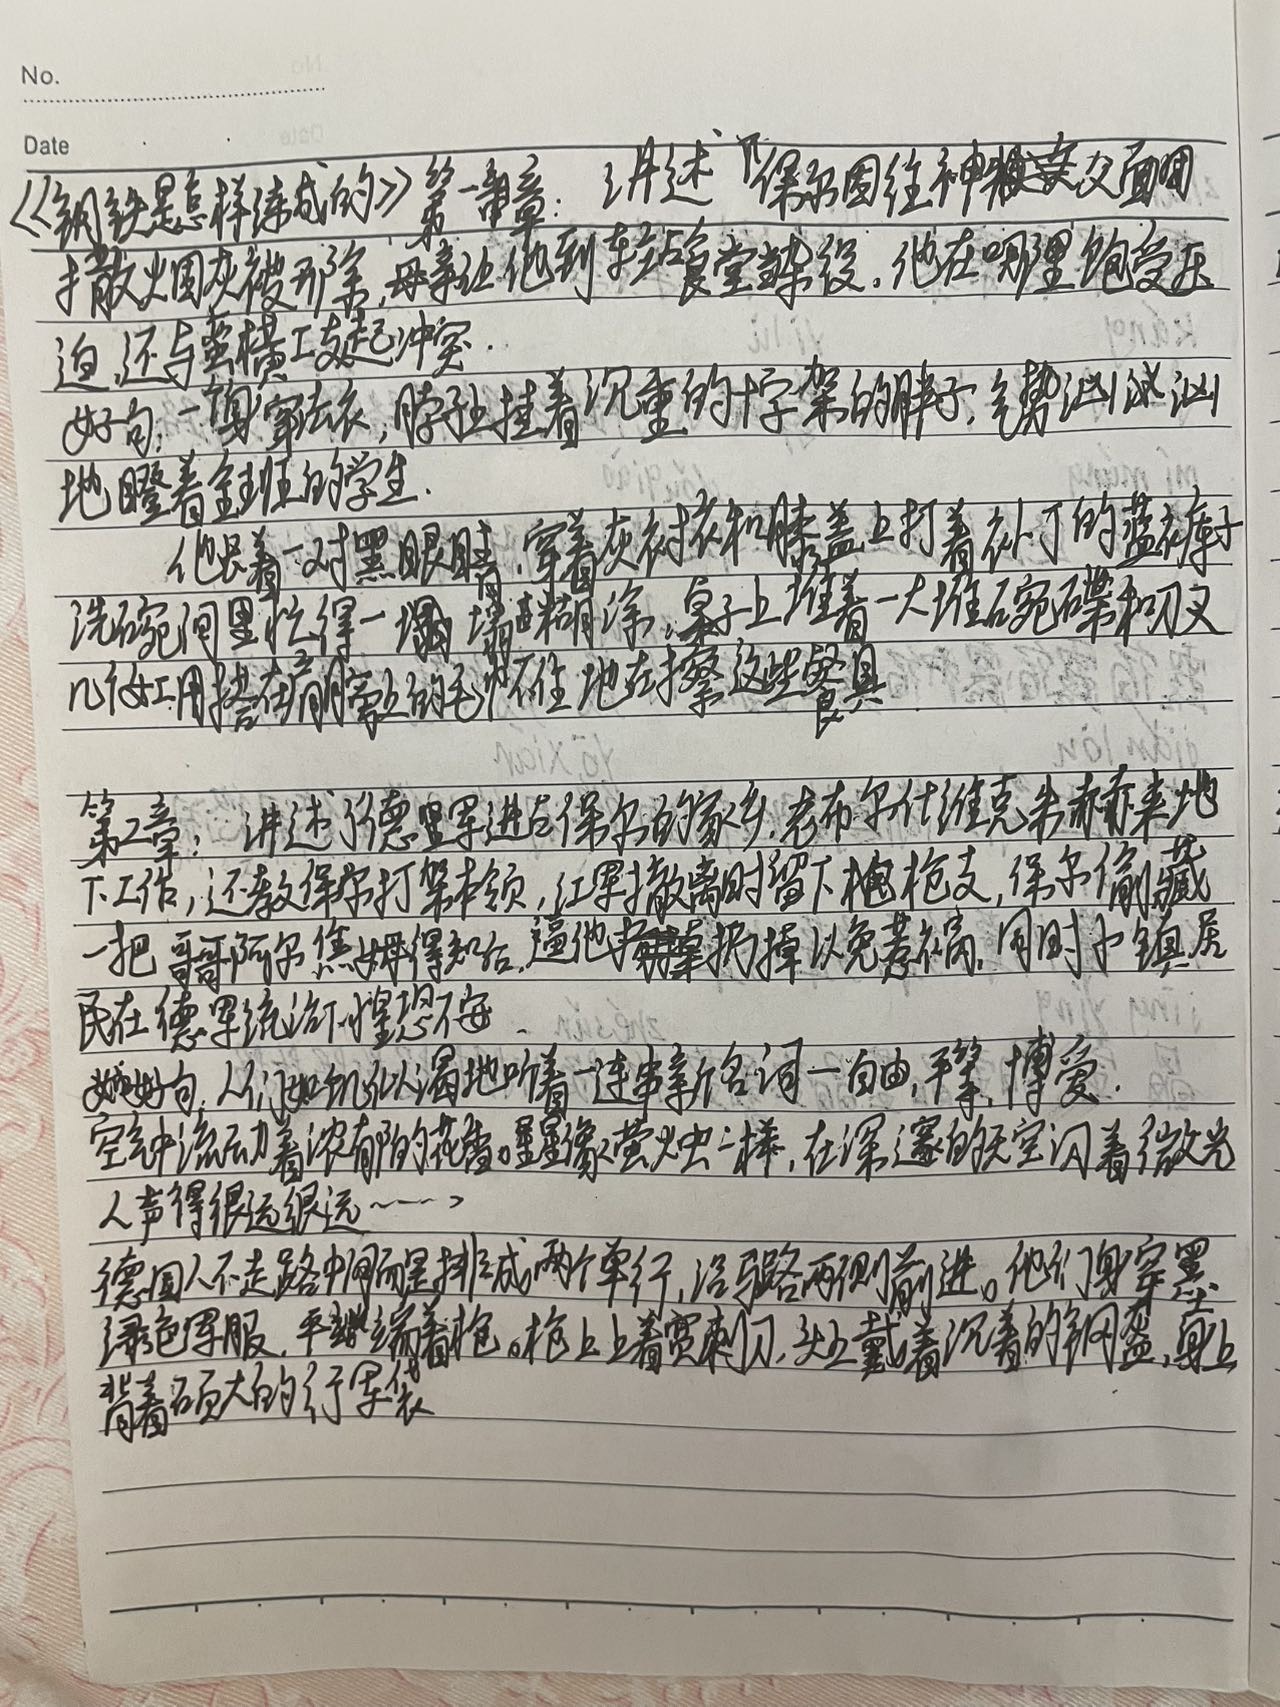 No.
Date
《钢铁是怎样炼成的》第一章：讲述了保尔因往神父面团
撒烟灰被开除，母亲让他到车站食堂杂役。他在哪里饱受压
迫，还与蛮横工友起冲突.
好句：一身穿法衣，脖子上挂着沉重的十字架的胖子，气势汹汹
地瞪着全班的学生.
他长着一对黑眼睛，穿着灰衬衣和膝盖上打着补丁的蓝裤子
洗碗间里忙得一塌糊涂，桌子上堆着一大堆碗碟和刀叉
几个女工用搭在肩膀上的毛巾不住地在擦这些餐具
第二章：讲述了德军进占保尔的家乡，老布尔什维克朱赫来地
下工作，还教保尔打架本领，红军撤离时留下枪支，保尔偷藏
一把 哥哥阿尔焦姆得知后，逼他扔掉以免惹祸，同时小镇居
民在德军统治下惶恐不安.
好句，人们如饥似渴地听着一连串新名词一自由，平等，博爱.
空气中流动着浓郁的花香。星星像萤火虫一样，在深邃的天空闪着微光
人声得很远很远
德国人不走路中间而是排成两个单行，沿马路两侧前进。他们身穿墨
绿色军服，平端着枪。枪上上着宽刺刀，头上戴着沉着的钢盔，身上
背着硕大的行军袋